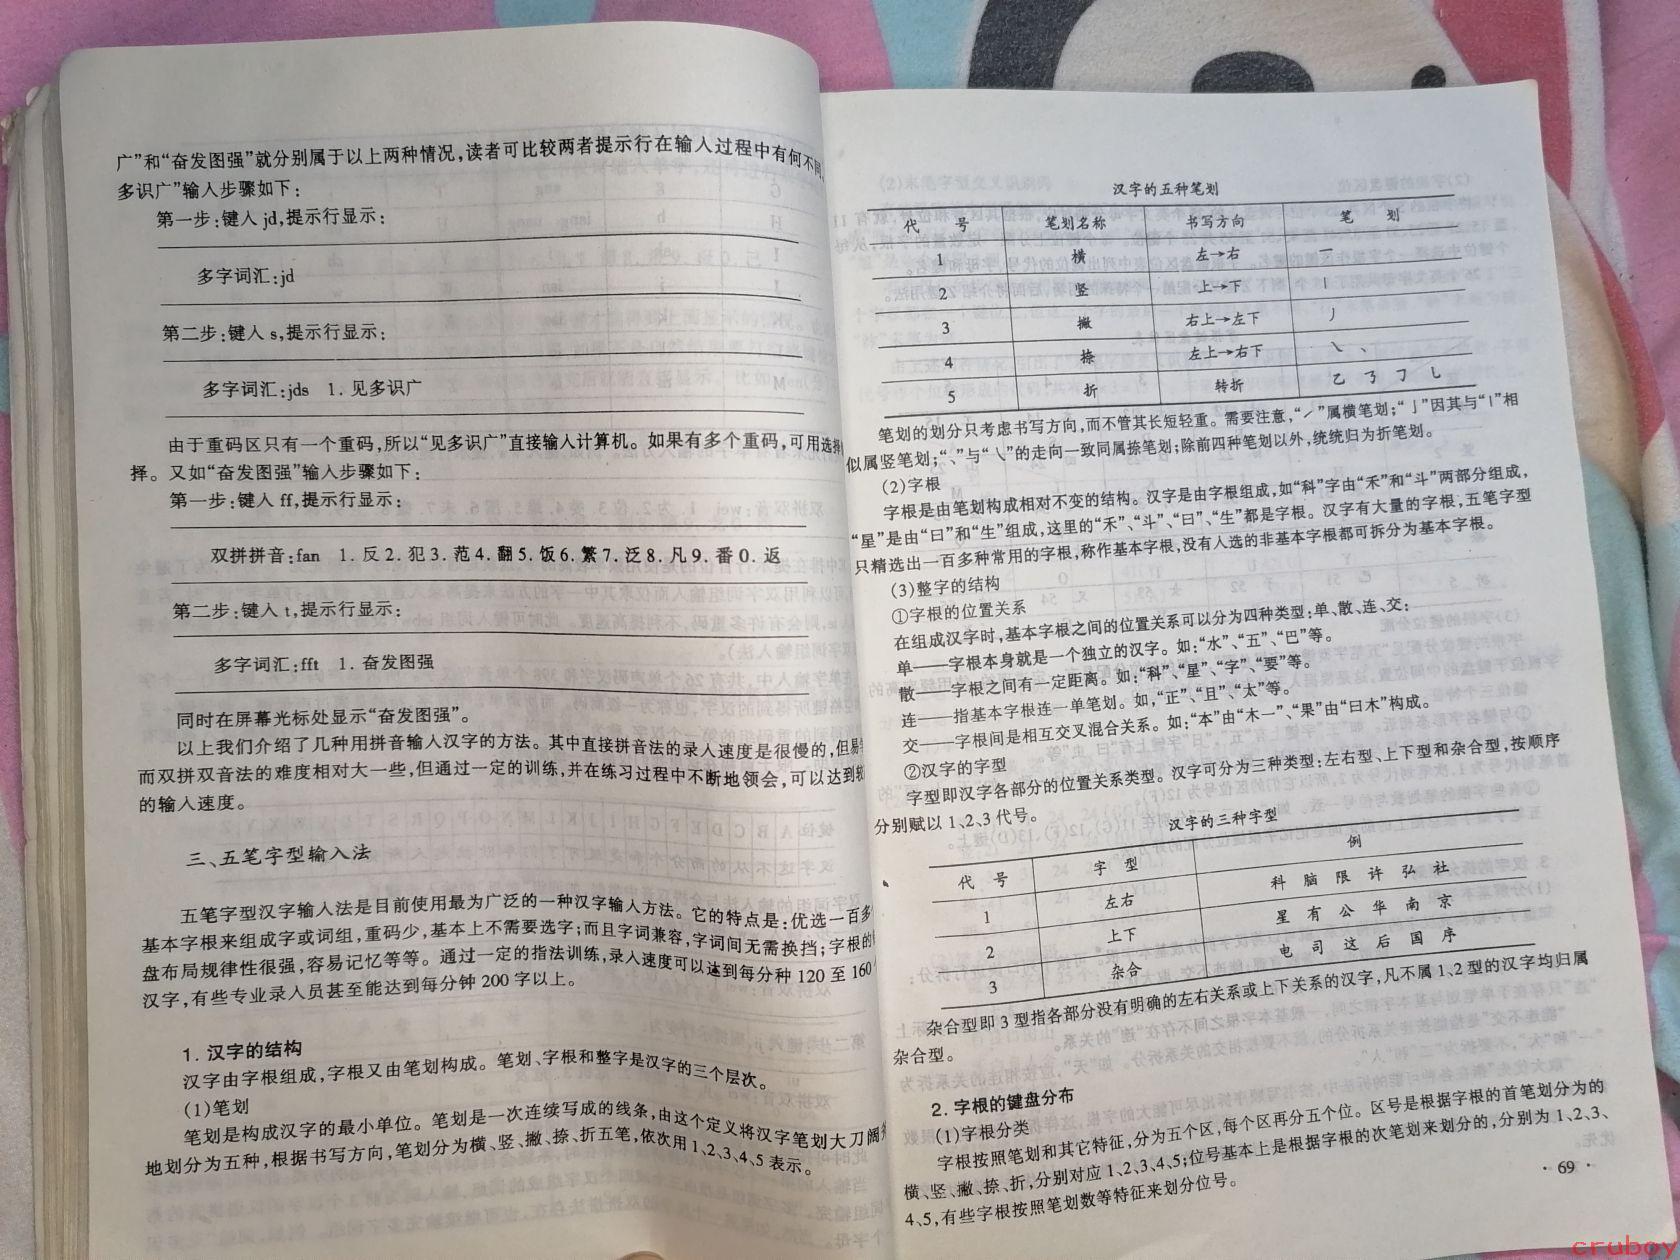 广”和“奋发图强”就分别属于以上两种情况,读者可比较两者提示行在输入过程中有何不同,
多识广”输入步骤如下:
第一步:键入jd,提示行显示:
多字词汇:jd
第二步:键入s,提示行显示:
多字词汇:jds 1.见多识广
由于重码区只有一个重码,所以“见多识广”直接输入计算机。如果有多个重码,可用选择
择。又如“奋发图强”输入步骤如下:
第一步:键入ff,提示行显示:
双拼拼音:fan 1.反2.犯3.范4.翻5.饭6.繁7.泛8.凡9.番0.返
第二步:键入t,提示行显示:
多字词汇:fft 1.奋发图强
同时在屏幕光标处显示“奋发图强”。
以上我们介绍了几种用拼音输入汉字的方法。其中直接拼音法的录入速度是很慢的,但易
而双拼双音法的难度相对大一些,但通过一定的训练,并在练习过程中不断地领会,可以达到较
的输入速度。
三、五笔字型输入法
五笔字型汉字输入法是目前使用最为广泛的一种汉字输入方法。它的特点是:优选一百多
基本字根来组成字或词组,重码少,基本上不需要选字;而且字词兼容,字词间无需换挡;字根的
盘布局规律性很强,容易记忆等等。通过一定的指法训练,录入速度可以达到每分种120至160
汉字,有些专业录入员甚至能达到每分钟200字以上。
1.汉字的结构
汉字由字根组成,字根又由笔划构成。笔划、字根和整字是汉字的三个层次。
(1)笔划
笔划是构成汉字的最小单位。笔划是一次连续写成的线条,由这个定义将汉字笔划大刀阔
地划分为五种,根据书写方向,笔划分为横、竖、撇、捺、折五笔,依次用1、2、3、4、5表示。
汉字的五种笔划
代 号 笔划名称 书写方向 笔 划
1 横 左→右 一
2 竖 上→下 丨
3 撇 右上→左下 丿
4 捺 左上→右下 ㇏ 、
5 折 转折 乙 ㄋ 𠃌 乚
笔划的划分只考虑书写方向,而不管其长短轻重。需要注意,“㇀”属横笔划;“亅”因其与“丨”相
似属竖笔划;“、”与“㇏”的走向一致同属捺笔划;除前四种笔划以外,统统归为折笔划。
(2)字根
字根是由笔划构成相对不变的结构。汉字是由字根组成,如“科”字由“禾”和“斗”两部分组成,
“星”是由“曰”和“生”组成,这里的“禾”、“斗”、“曰”、“生”都是字根。汉字有大量的字根,五笔字型
只精选出一百多种常用的字根,称作基本字根,没有入选的非基本字根都可拆分为基本字根。
(3)整字的结构
①字根的位置关系
在组成汉字时,基本字根之间的位置关系可以分为四种类型:单、散、连、交:
单——字根本身就是一个独立的汉字。如:“水”、“五”、“巴”等。
散——字根之间有一定距离。如:“科”、“星”、“字”、“要”等。
连——指基本字根连一单笔划。如,“正”、“且”、“太”等。
交——字根间是相互交叉混合关系。如:“本”由“木一”、“果”由“曰木”构成。
②汉字的字型
字型即汉字各部分的位置关系类型。汉字可分为三种类型:左右型、上下型和杂合型,按顺序
分别赋以1、2、3代号。
汉字的三种字型
代 号 字 型 例
1 左右 科 脑 限 许 弘 社
2 上下 星 有 公 华 南 京
3 杂合 电 司 这 后 国 序
杂合型即3型指各部分没有明确的左右关系或上下关系的汉字,凡不属1、2型的汉字均归属
杂合型。
2.字根的键盘分布
(1)字根分类
字根按照笔划和其它特征,分为五个区,每个区再分五个位。区号是根据字根的首笔划分为的
横、竖、撇、捺、折,分别对应1、2、3、4、5;位号基本上是根据字根的次笔划来划分的,分别为1、2、3、
4、5,有些字根按照笔划数等特征来划分位号。
·69·
cruboy